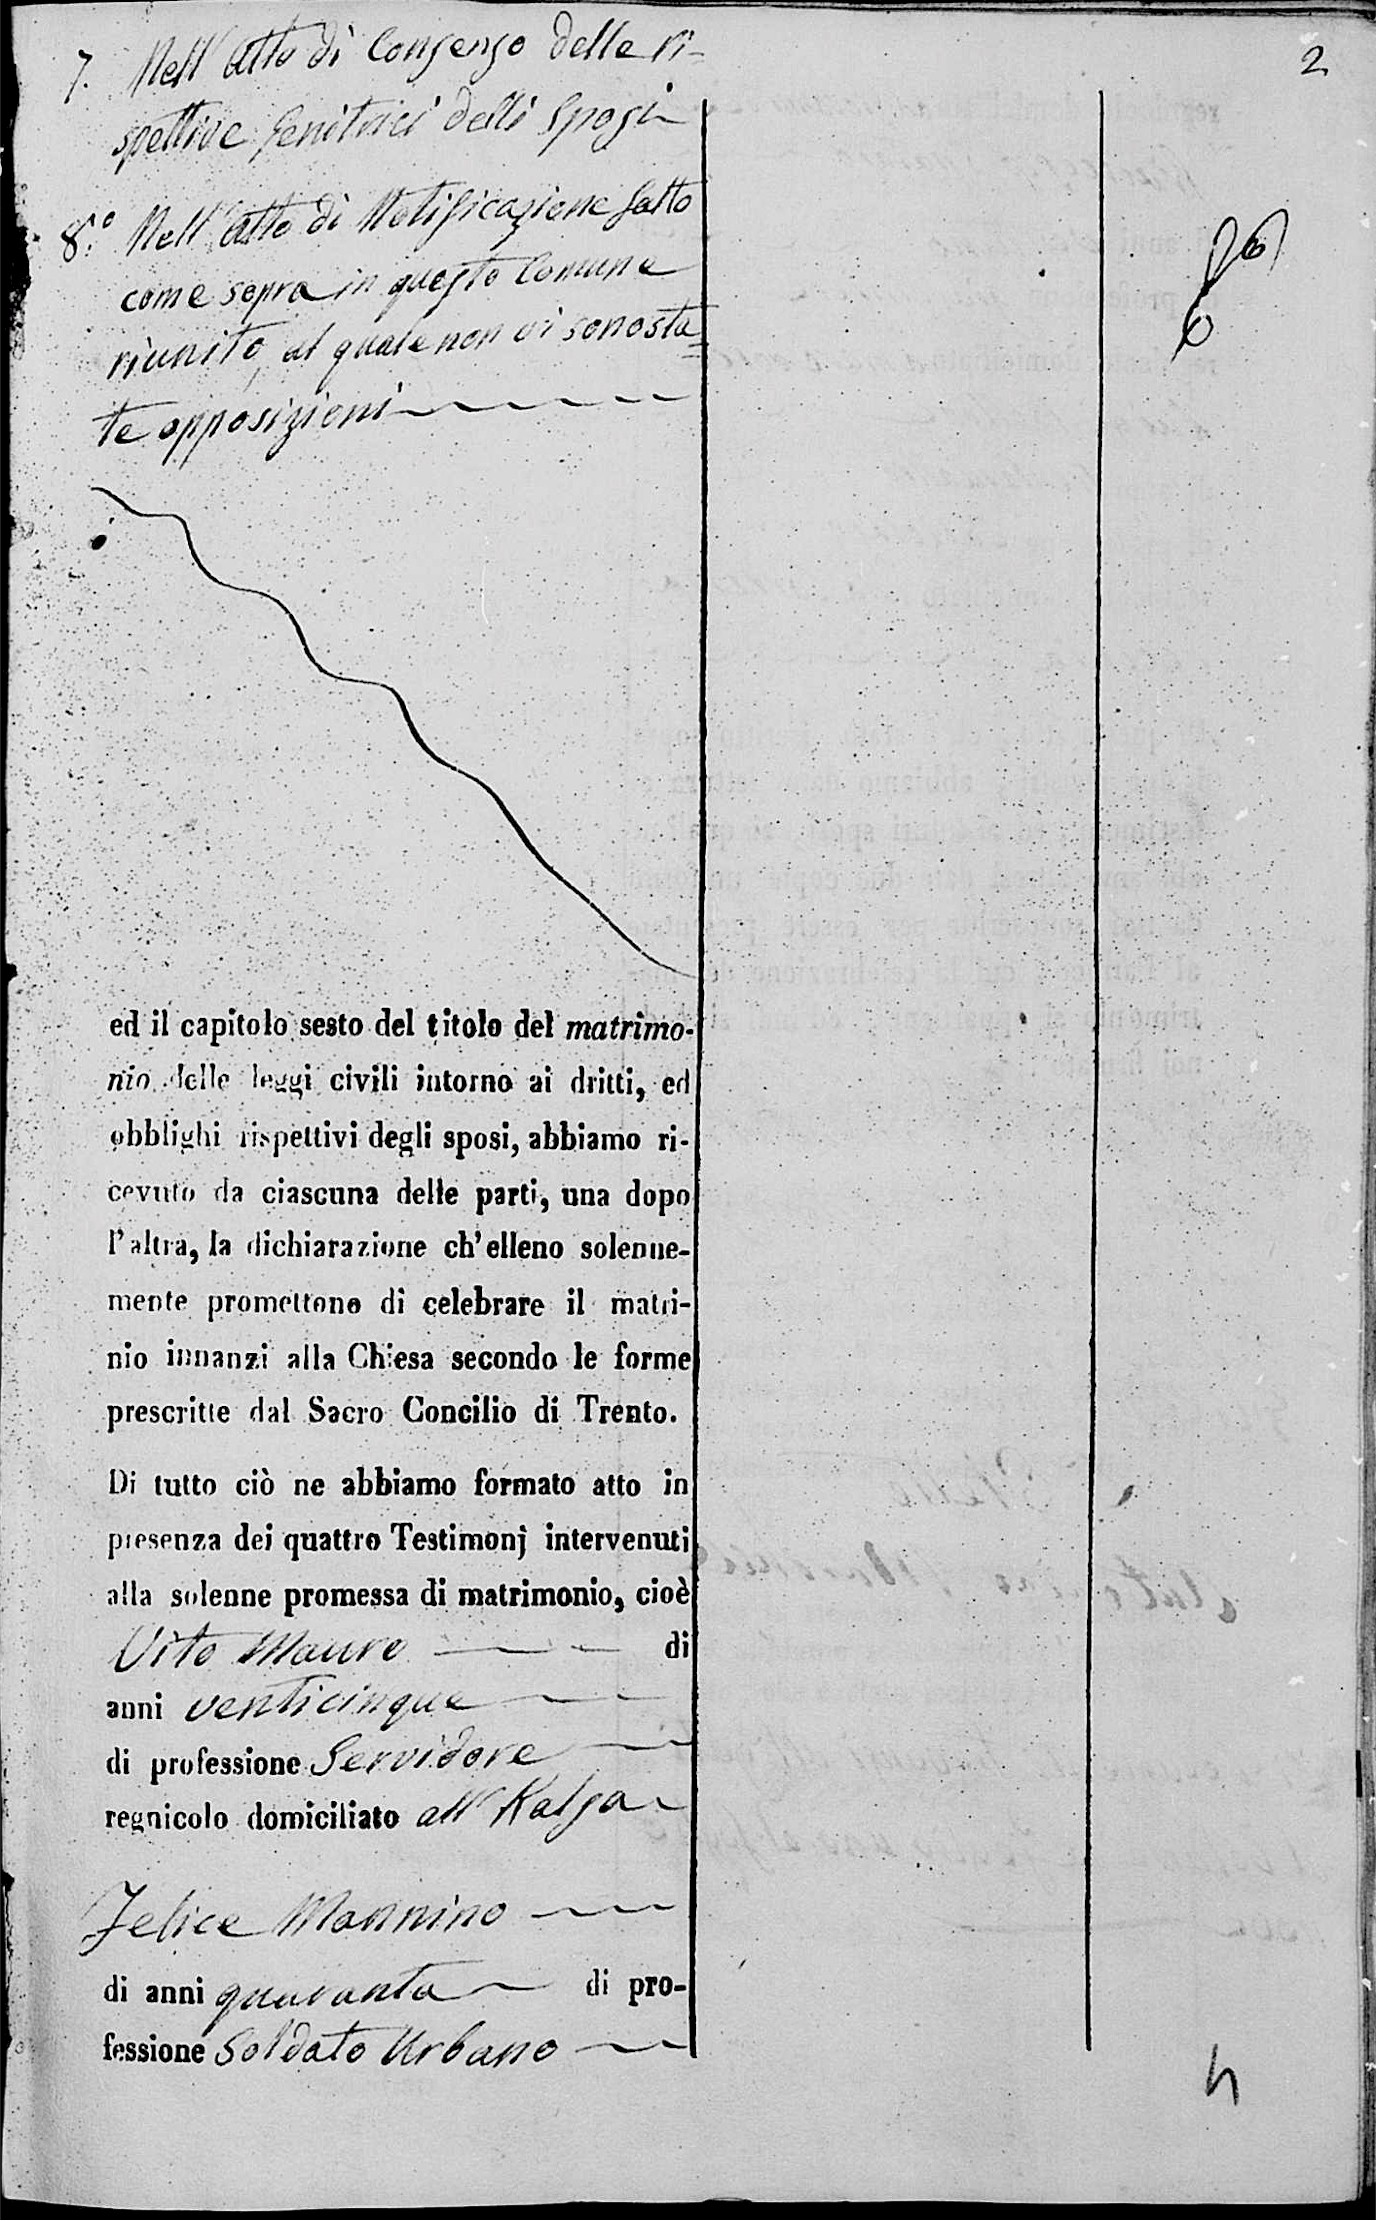 2
7. Nell'Atto di Consenso delle ri-
spettive Genitrici delli Sposi
8.° Nell'Atto di Notificazione fatto
come sopra in questo Comune
riunito, al quale non vi sono sta=
te opposizioni
ed il capitolo sesto del titolo del matrimo-
nio delle leggi civili intorno ai dritti, ed
obblighi rispettivi degli sposi, abbiamo ri-
cevuto da ciascuna delle parti, una dopo
l'altra, la dichiarazione ch'elleno solenne-
mente promettono di celebrare il matri-
nio innanzi alla Chiesa secondo le forme
prescritte dal Sacro Concilio di Trento.
Di tutto ciò ne abbiamo formato atto in
presenza dei quattro Testimonj intervenuti
alla solenne promessa di matrimonio, cioè
Vito Mauro di
anni venticinque
di professione Servidore
regnicolo domiciliato all'Kalsa
Felice Mannino
di anni quaranta di pro-
fessione Soldato Urbano